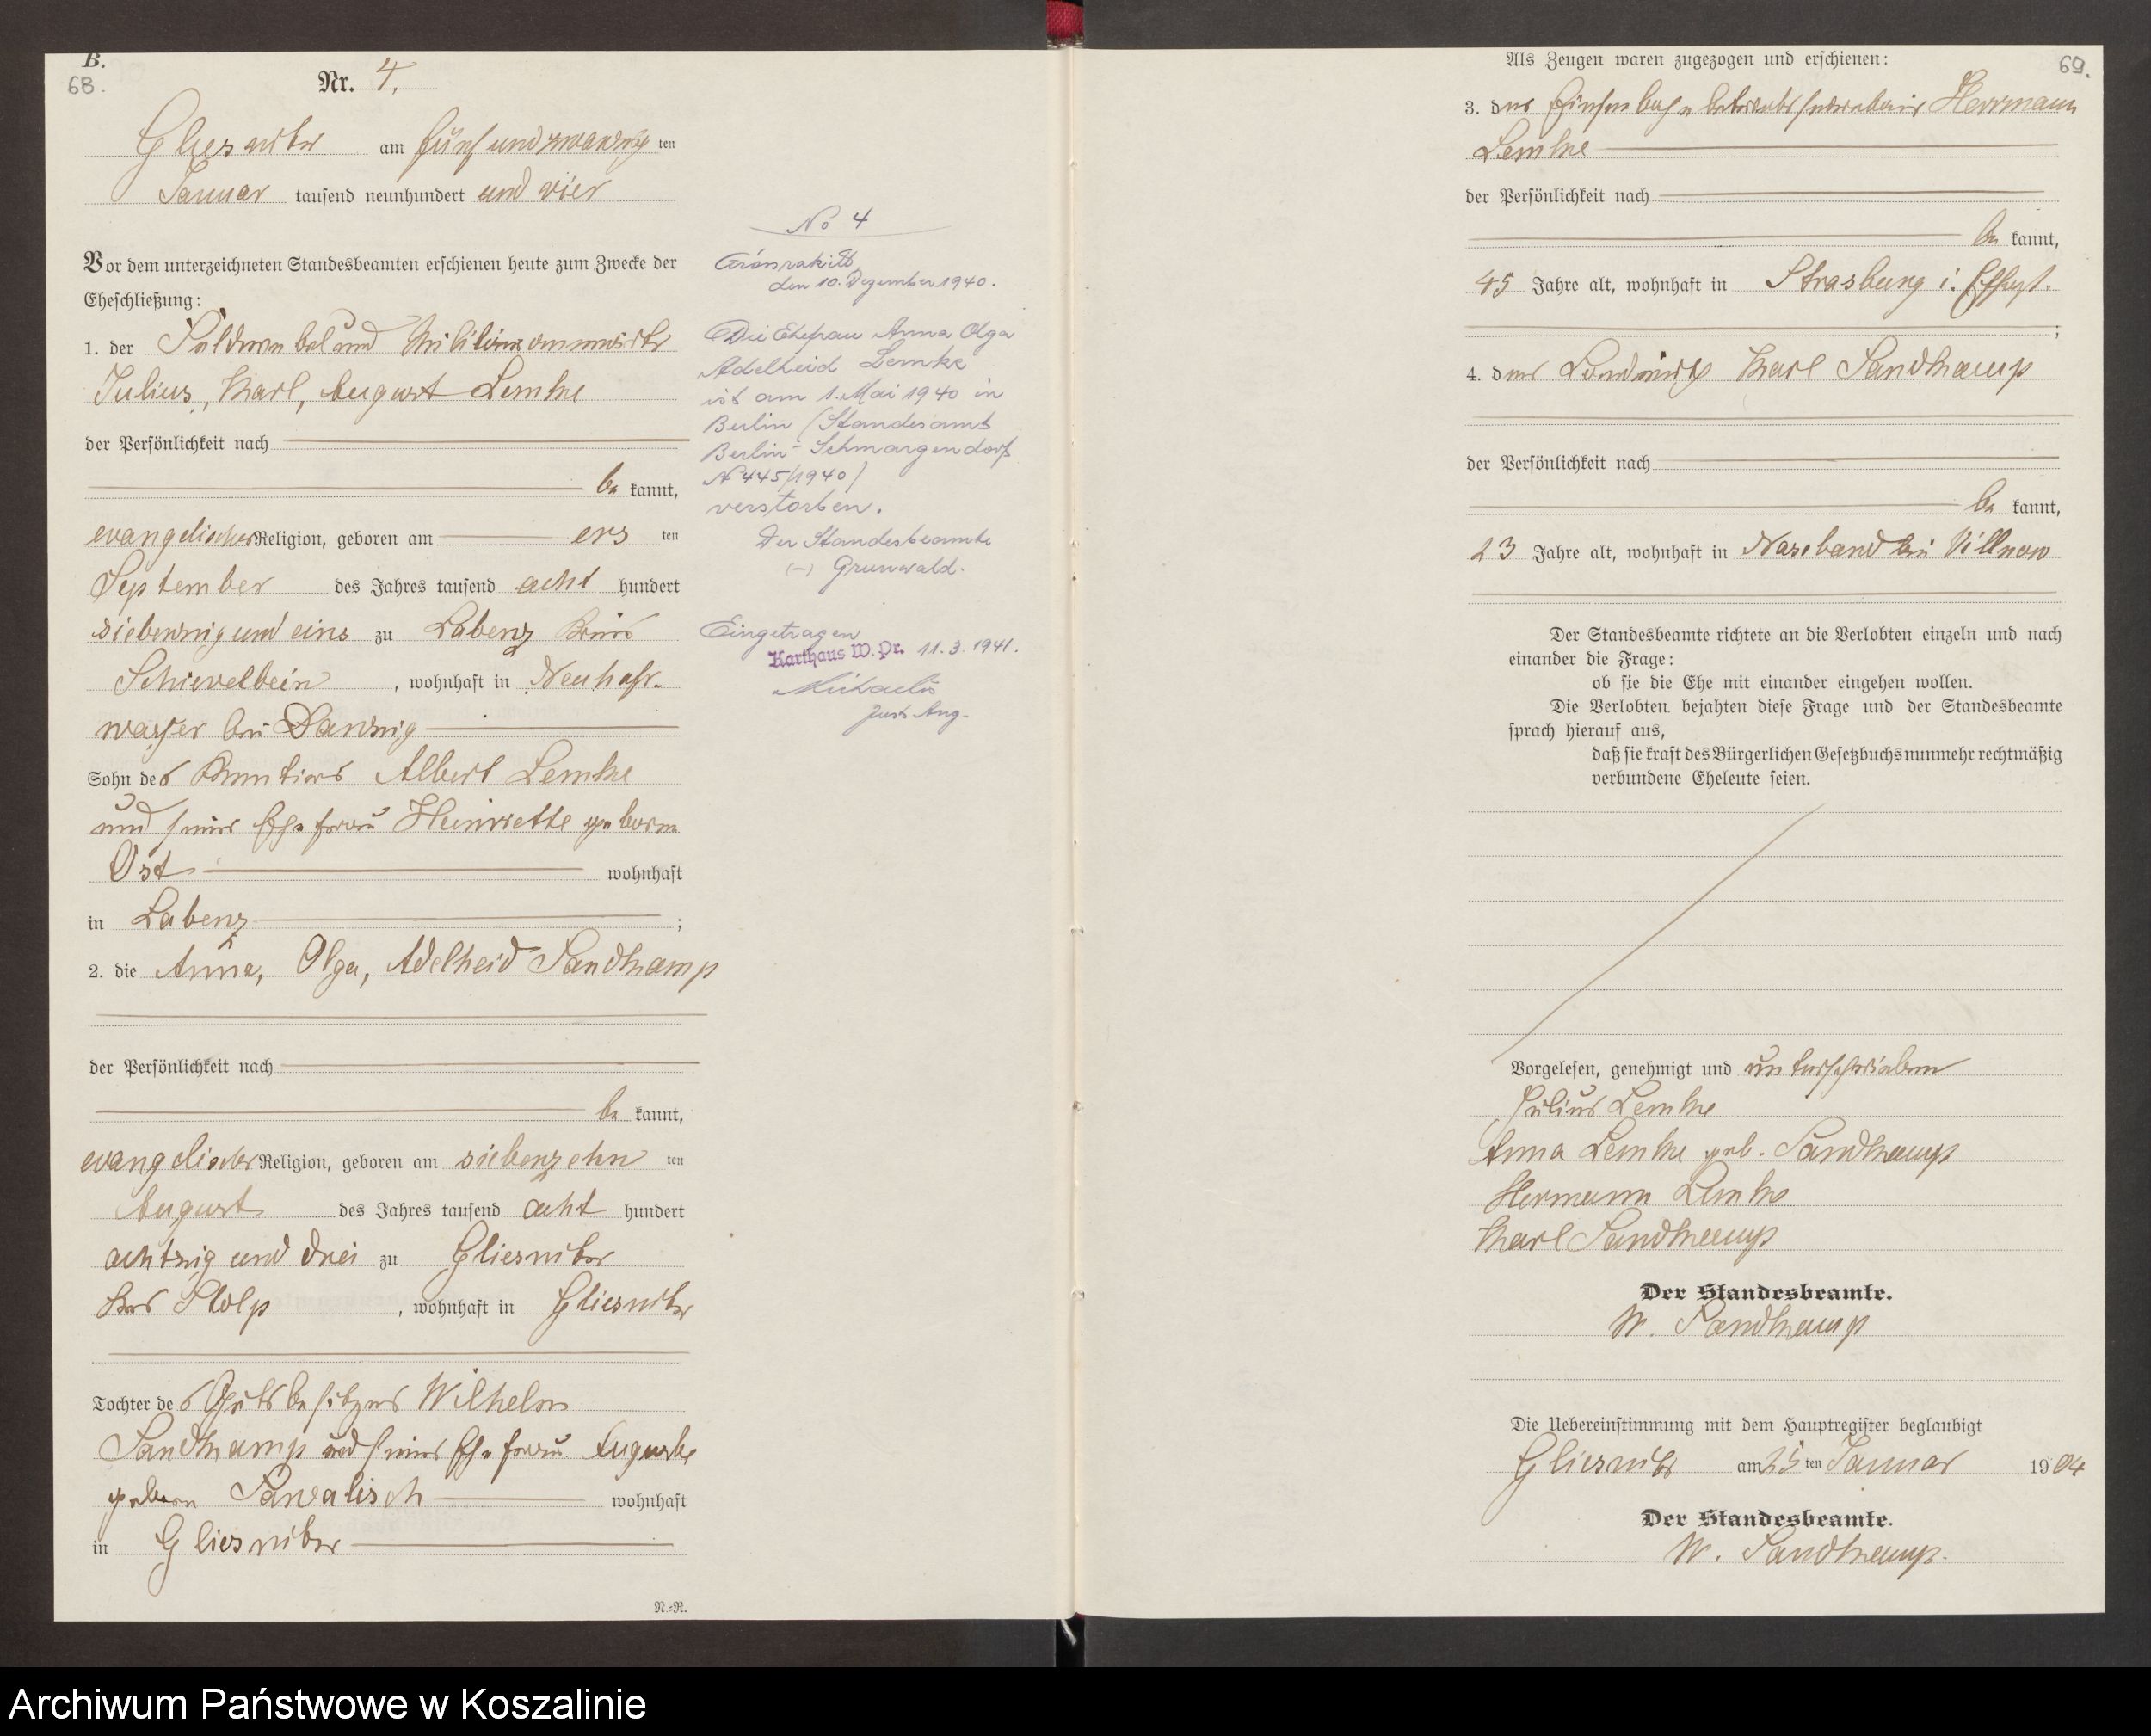 B.
68.
Nr. 4.
Gliesnitz am fünfundzwanzig ten
Januar tausend neunhundert und vier
Vor dem unterzeichneten Standesbeamten erschienen heute zum Zwecke der
Eheschließung:
1. der Feldwebel und Militäranwärter
Julius, Karl, August Lemke
der Persönlichkeit nach
be kannt,
evangelischer Religion, geboren am ers ten
September des Jahres tausend acht hundert
siebenzig und eins zu Labenz Kreis
Schievelbein, wohnhaft in Neufahr-
wasser bei Danzig
Sohn des Rentiers Albert Lemke
und seiner Ehefrau Henriette geborne
Ost wohnhaft
in Labenz;
2. die Anna, Olga, Adelheid Sandkamp
der Persönlichkeit nach
be kannt,
evangelischer Religion, geboren am siebenzehn ten
August des Jahres tausend acht hundert
achtzig und drei zu Gliesnitz
Krs Stolp, wohnhaft in Gliesnitz
Tochter des Gutsbesitzers Wilhelm
Sandkamp und seiner Ehefrau Auguste
geborn wohnhaft
in Gliesnitz
N.=R.
No 4
den 10. Dezember 1940.
Die Ehefrau Anna Olga
Adelheid Lemke
ist am 1. Mai 1940 in
Berlin (Standesamt
Berlin-Schmargendorf
N 445/1940)
verstorben.
Der Standesbeamte
(-) Grunwald.
Eingetragen
Karthaus W. Pr. 11.3.1941.
Michaelis
Just. Ang.
69.
Als Zeugen waren zugezogen und erschienen:
3. der Herrmann
Lemke
der Persönlichkeit nach
be kannt,
45 Jahre alt, wohnhaft in Strasburg i.
;
4. der Landwirth Karl Sandkamp
der Persönlichkeit nach
be kannt,
23 Jahre alt, wohnhaft in Naseband bei Villnow
Der Standesbeamte richtete an die Verlobten einzeln und nach
einander die Frage:
ob sie die Ehe mit einander eingehen wollen.
Die Verlobten bejahten diese Frage und der Standesbeamte
sprach hierauf aus,
daß sie kraft des Bürgerlichen Gesetzbuchs nunmehr rechtmäßig
verbundene Eheleute seien.
Vorgelesen, genehmigt und unterschrieben
Julius Lemke
Anna Lemke geb. Sandkamp
Hermann Lemke
Karl Sandkamp
Der Standesbeamte.
W. Sandkamp
Die Uebereinstimmung mit dem Hauptregister beglaubigt
Gliesnitz am 25 ten Januar 1904
Der Standesbeamte.
W. Sandkamp.
Archiwum Państwowe w Koszalinie